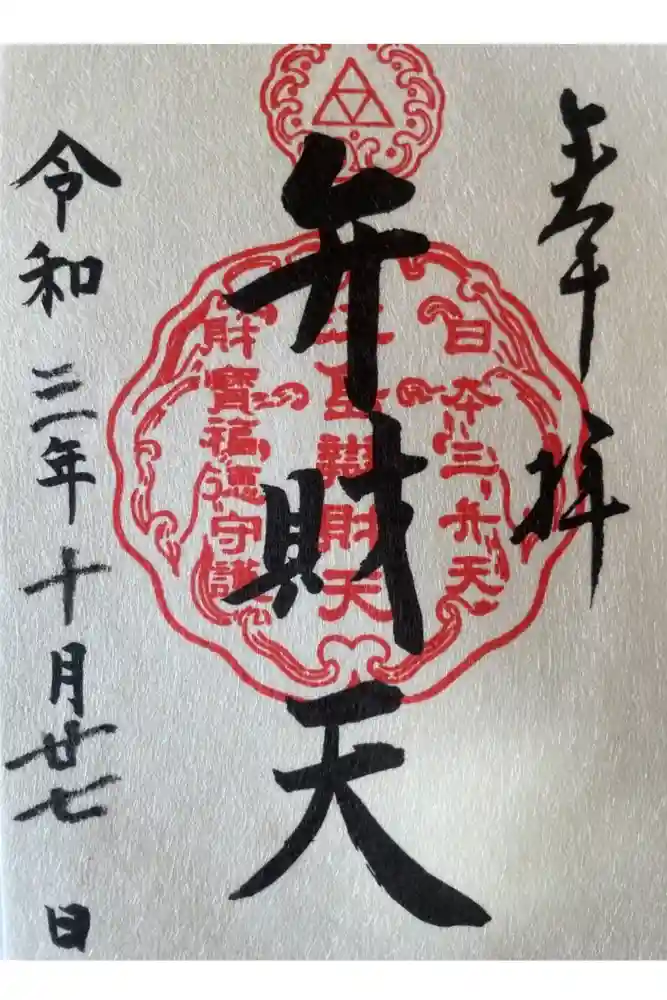 奉拝
日本三弁天
江島辨財天
財寶福徳守護
弁財天
令和三年十月廿七日